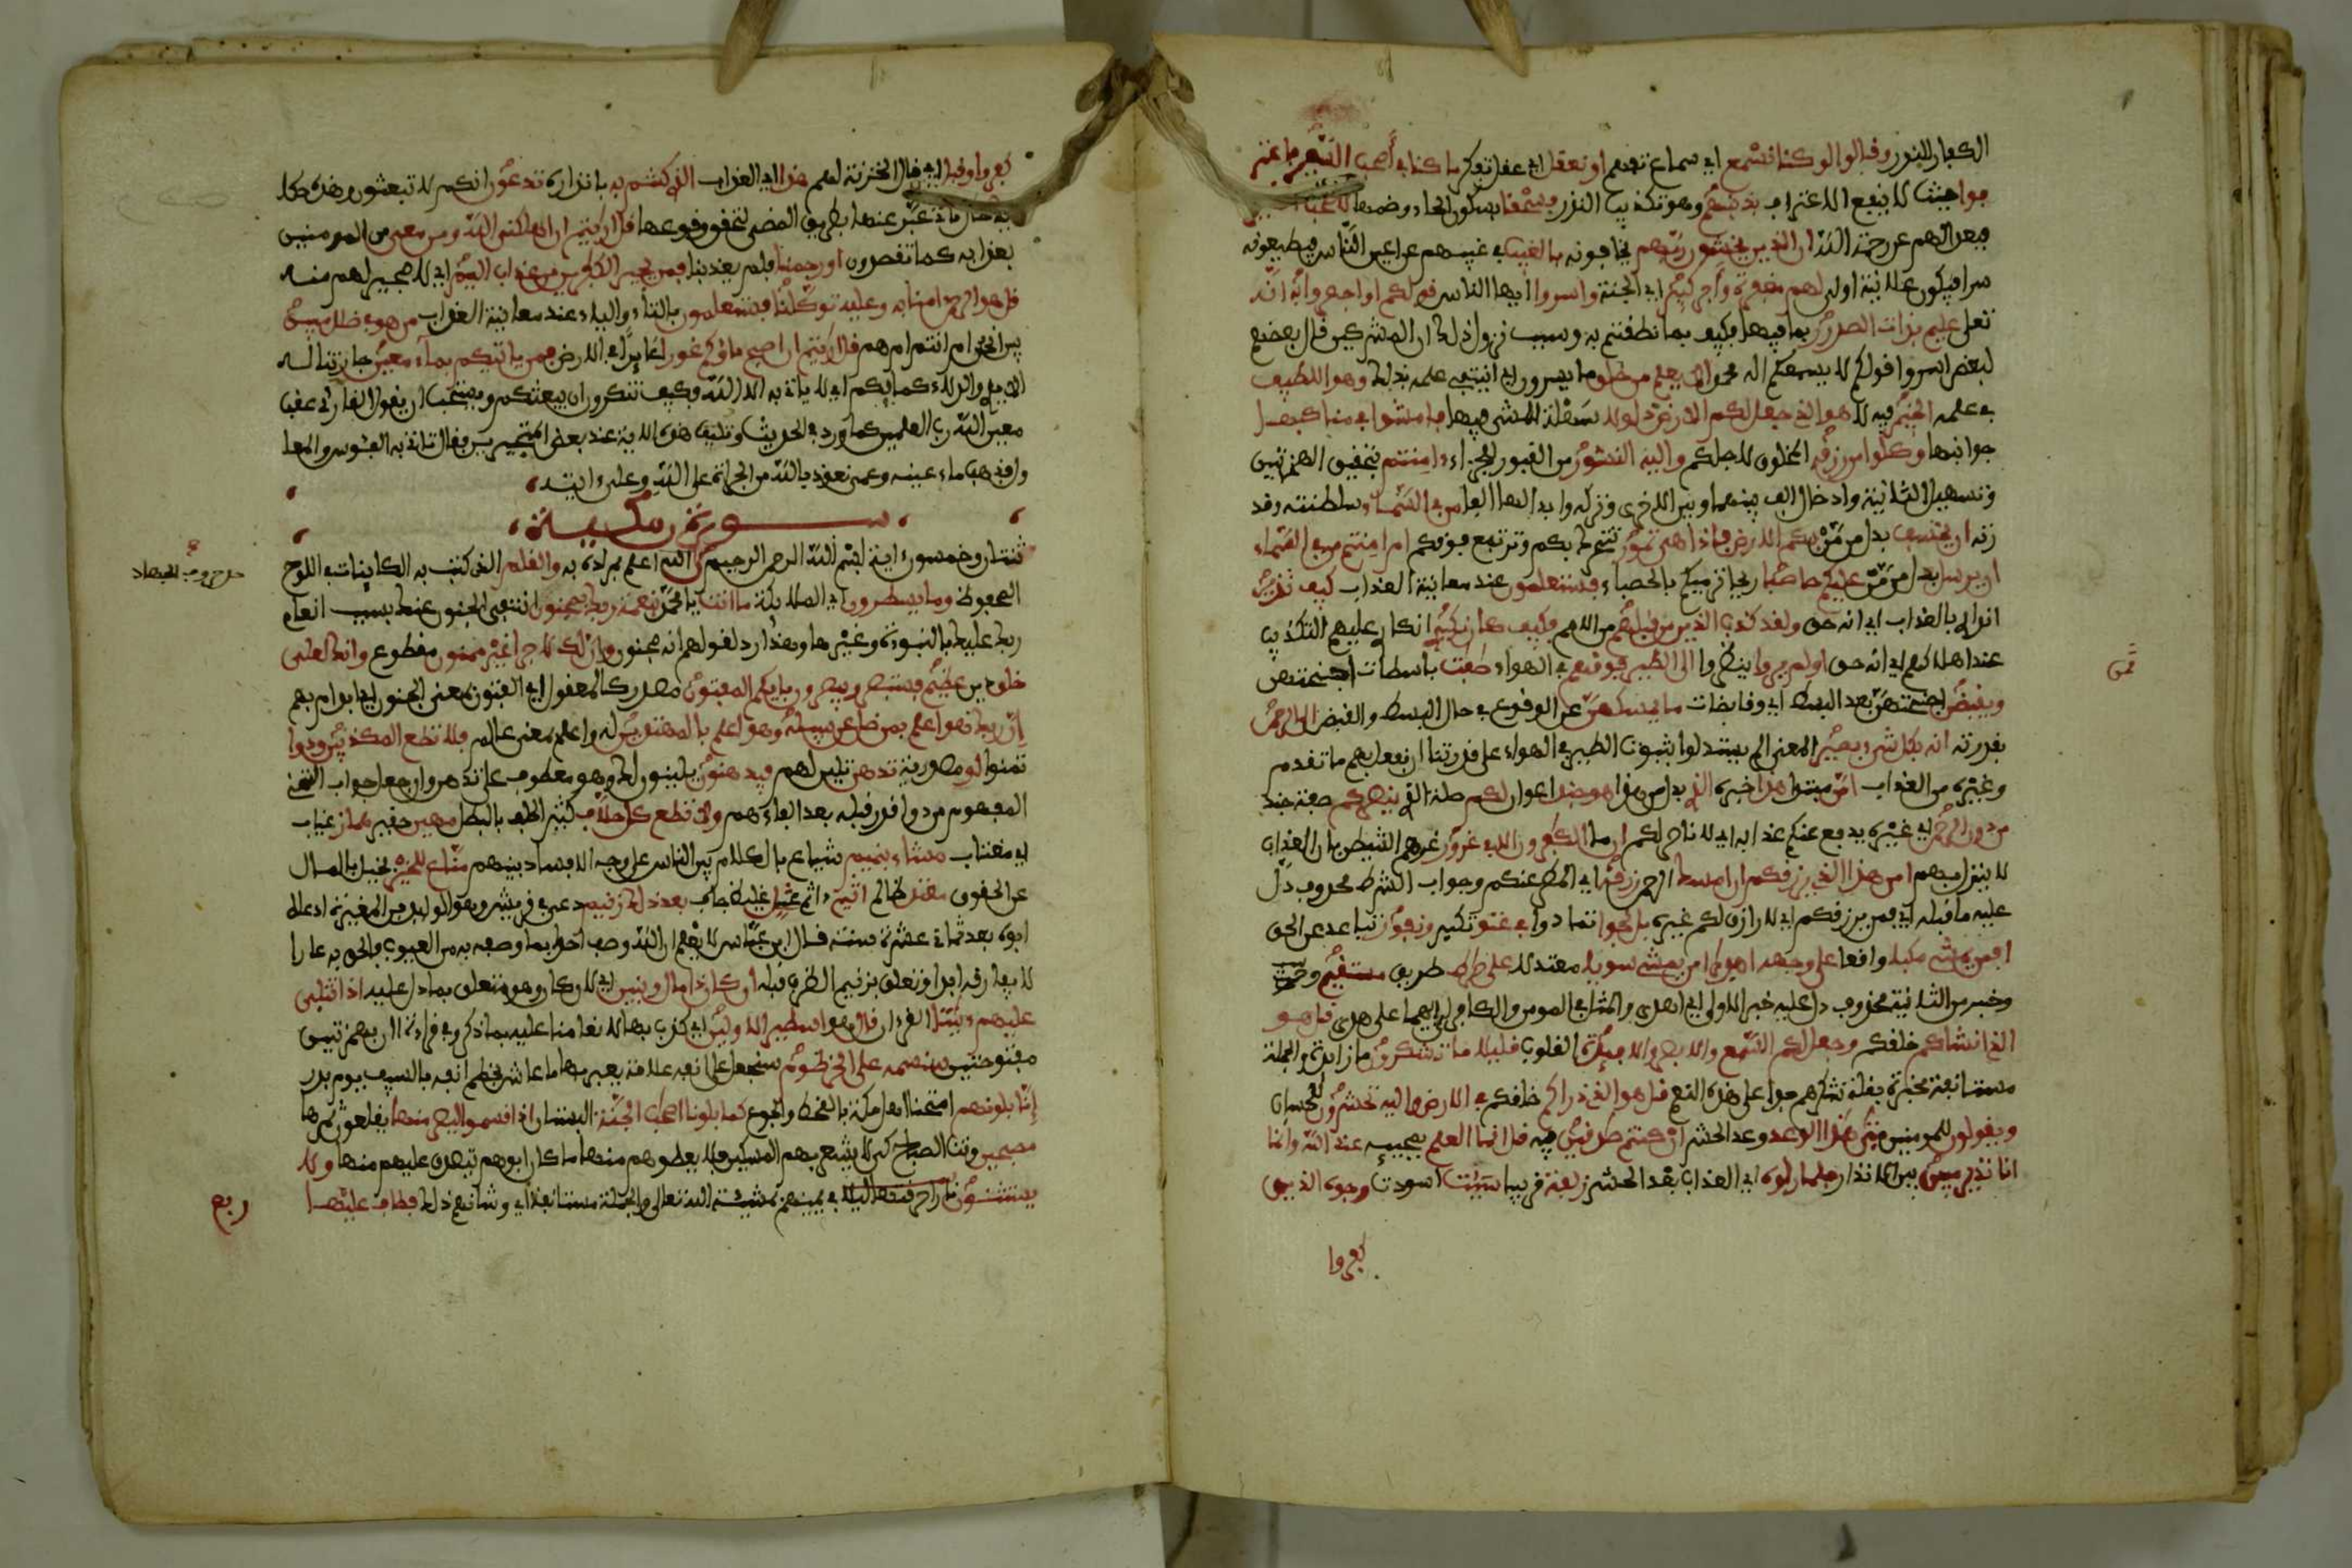 الكفار للنذر وقالوا لو كنا نسمع اي سماع تفهم او نعقل اي عقل تفكر ما كنا في أصحب السعير فاعتر
فوا حيث لا ينفع الاعتراف بذنبهم وهو تكذيب النذر فسحقا بسكون الحاء وضمها لاصحب السعير
فبعدا لهم عن رحمة الله ان الذين يخشون ربهم يخافونه بالغيب في غيبتهم عن اعين الناس فيطيعونه
سرا فيكون علانية اولى لهم مغفرة وأجر كبير اي الجنة واسروا ايها الناس قولكم او اجهروا به انه
تعلى عليم بذات الصدور بما فيها فكيف بما نطقتم به وسبب نزول ذلك ان المشركين قال بعضهم
لبعض اسروا قولكم لا يسمعكم اله محمد الا يعلم من خلق ما يسرون اي اينتفي علمه بذلك وهو اللطيف
في علمه الخبير فيه لا هو الذي جعل لكم الارض ذلولا سهلة للمشي فيها فامشوا في مناكبها
جوانبها وكلوا من رزقه المخلوق لاجلكم واليه النشور من القبور للجزاء ءامنتم بتحقيق الهمزتين
وتسهيل الثانية وادخال الف بينها وبين الاخرى وتركه وابدالها الفا من في السماء سلطنته وقد
رته ان يخسف بدل من مَن بكم الارض فاذا هي تمور تتحرك بكم وترتفع فوقكم ام امنتم من في السماء
ان يرسل بدل من مَن عليكم حاصبا ريحا ترميكم بالحصباء فستعلمون عند معاينة العذاب كيف نذير
انذاري بالعذاب اي انه حق ولقد كذب الذين من قبلهم من الامم فكيف كان نكير انكاري عليهم التكذيب
عند اهلاكهم اي انه حق اولم يروا ينظروا الى الطير فوقهم في الهواء صفت باسطات اجنحتهن
ويقبضن اجنحتهن بعد البسط اي وقابضات ما يمسكهن عن الوقوع في حال البسط والقبض الا الرحمن
بقدرته انه بكل شيء بصير المعنى الم يستدلوا بثبوت الطير في الهواء على قدرتنا ان نفعل بهم ما تقدم
وغيره من العذاب امن مبتدا هذا خبره الذي بدل من هذا هو جند اعوان لكم صلة الذي ينصركم صفة جند
من دون الرحمن اي غيره يدفع عنكم عذابه اي لا ناصر لكم ان ما الكفرون الا في غرور غرهم الشيطن بان العذاب
لا ينزل بهم امن هذا الذي يرزقكم ان امسك الرحمن رزقه اي المطر عنكم وجواب الشرط محذوف دل
عليه ما قبله اي فمن يرزقكم اي لا رازق لكم غيره بل لجوا تمادوا في عتو تكبر ونفور تباعد عن الحق
افمن يمشي مكبا واقعا على وجهه اهدى امن يمشي سويا معتدلا على صراط طريق مستقيم
وخبر من الثانية محذوف دل عليه خبر الاولى اي اهدى والمثل في المومن والكافر اي ايهما على هدى قل هو
الذي انشاكم خلقكم وجعل لكم السمع والابصر والافئدة القلوب قليلا ما تشكرون ما زائدة والجملة
مستانفة مخبرة بقلة شكرهم جدا على هذه النعم قل هو الذي ذراكم خلقكم في الارض واليه تحشرون للحساب
ويقولون للمومنين متى هذا الوعد وعد الحشر ان كنتم صدقين فيه قل انما العلم بمجيئه عند الله وانما
انا نذير مبين بين الانذار فلما راوه اي العذاب بعد الحشر زلفة قريبا سيئت اسودت وجوه الذين
كفروا
ثمن
كفروا وقيل اي قال الخزنة لهم هذا اي العذاب الذي كنتم به بانذاره تدعون انكم لا تبعثون وهذه حكا
ية حال تاتي عبر عنها بطريق المضي لتحقق وقوعها قل ارايتم ان اهلكني الله ومن معي من المومنين
بعذابه كما تقصدون او رحمنا فلم يعذبنا فمن يجير الكفرين من عذاب اليم اي لا مجير لهم منه
قل هو الرحمن امنا به وعليه توكلنا فستعلمون بالتاء والياء عند معاينة العذاب من هو في ضلل مبين
بين انحن ام انتم ام هم قل ارايتم ان اصبح ماؤكم غورا غايرا في الارض فمن ياتيكم بماء معين جار تناله
الايدي والدلاء كمائكم اي لا ياتي به الا الله فكيف تنكرون ان يبعثكم ويستحب ان يقول القارئ عقب
معين الله رب العلمين كما ورد في الحديث وتليت هذه الاية عند بعض المتجبرين فقال تاتي به الفئوس والمعا
ول فذهب ماء عينه وعمي نعوذ بالله من الجراة على الله وعلى ءايته
سورة ن مكية
ثنتان وخمسون ءاية بسم الله الرحمن الرحيم ن الله اعلم بمراده به والقلم الذي كتب به الكاينات في اللوح
المحفوظ وما يسطرون اي الملايكة ما انت يا محمد بنعمة ربك بمجنون انتفى الجنون عنك بسبب انعام
ربك عليك بالنبوءة وغيرها وهذا رد لقولهم انه مجنون وان لك لاجرا غير ممنون مقطوع وانك لعلى
خلق دين عظيم فستبصر ويبصرون بايكم المفتون مصدر كالمعقول اي الفتون بمعنى الجنون اي ابك ام بهم
إن ربك هو اعلم بمن ضل عن سبيله وهو اعلم بالمهتدين له واعلم بمعنى عالم فلا تطع المكذبين ودوا
تمنوا لو مصدرية تدهن تلين لهم فيدهنون يلينون لك وهو معطوف على تدهن وان جعل جواب التمني
المفهوم من ودوا قدر قبله بعد الفاء هم ولا تطع كل حلاف كثير الحلف بالبطل مهين حقير هماز عياب
اي مغتاب مشاء بنميم ساع بالكلام بين الناس على وجه الافساد بينهم مناع للخير بخيل بالمال
عن الحقوق معتد ظالم اثيم ءاثم عتل غليظ جاف بعد ذلك زنيم دعي في قريش وهو الوليد بن المغيرة ادعاه
ابوه بعد ثماني عشرة سنة قال ابن عباس لا نعلم ان الله وصف احدا بما وصفه به من العيوب فالحق به عارا
لا يفارقه ابدا وتعلق بزنيم الظرف قبله أن كان ذا مال وبنين اي لان وكان وهو متعلق بما دل عليه اذا تتلى
عليهم ءايتنا القرءان قال هو اسطير الاولين اي كذب بها لانعامنا عليه بما ذكر وفي قراءة اان بهمزتين
مفتوحتين سنسمه على الخرطوم سنجعل على انفه علامة يعير بها ما عاش فخطم انفه بالسيف يوم بدر
إنا بلونهم امتحنا اهل مكة بالقحط والجوع كما بلونا اصحب الجنة البستان اذ اقسموا ليصرمنها يقطعون ثمرها
مصبحين وقت الصباح كي لا يشعر بهم المسكين فلا يعطوهم منها ما كان ابوهم يتصدق عليهم منها ولا
يستثنون في يمينهم بمشيئة الله تعالى والجملة مستانفة اي وشانهم ذلك فطاف عليها
ربع